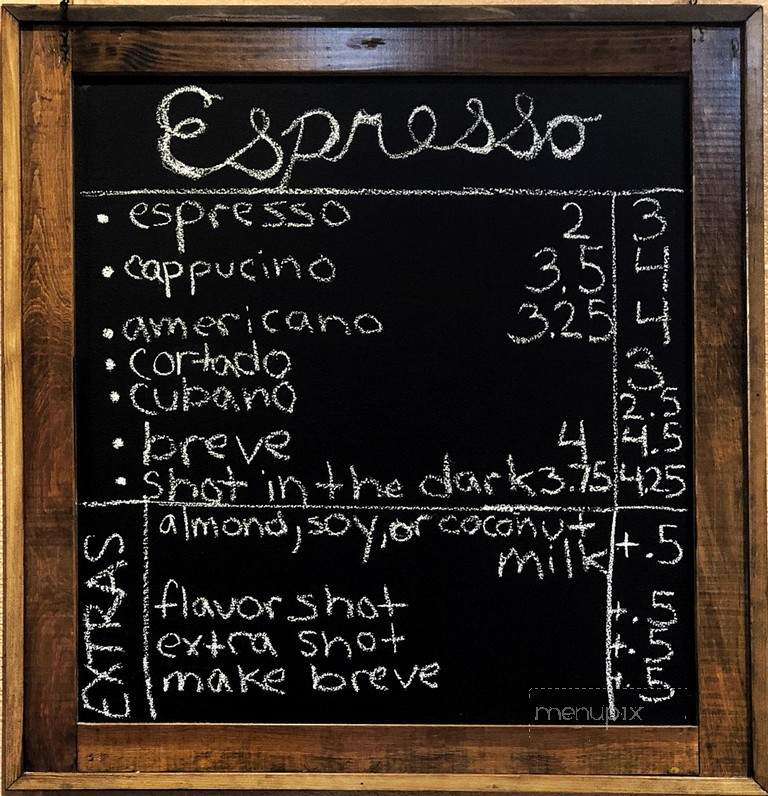 Espresso
• espresso 2 3
• cappucino 3.5 4
• americano 3.25 4
• cortado 3
• cubano 2.5
• breve 4 4.5
• shot in the dark 3.75 4.25
EXTRAS
almond, soy, or coconut
milk +.5
flavor shot +.5
extra shot +.5
make breve +.5
menupix